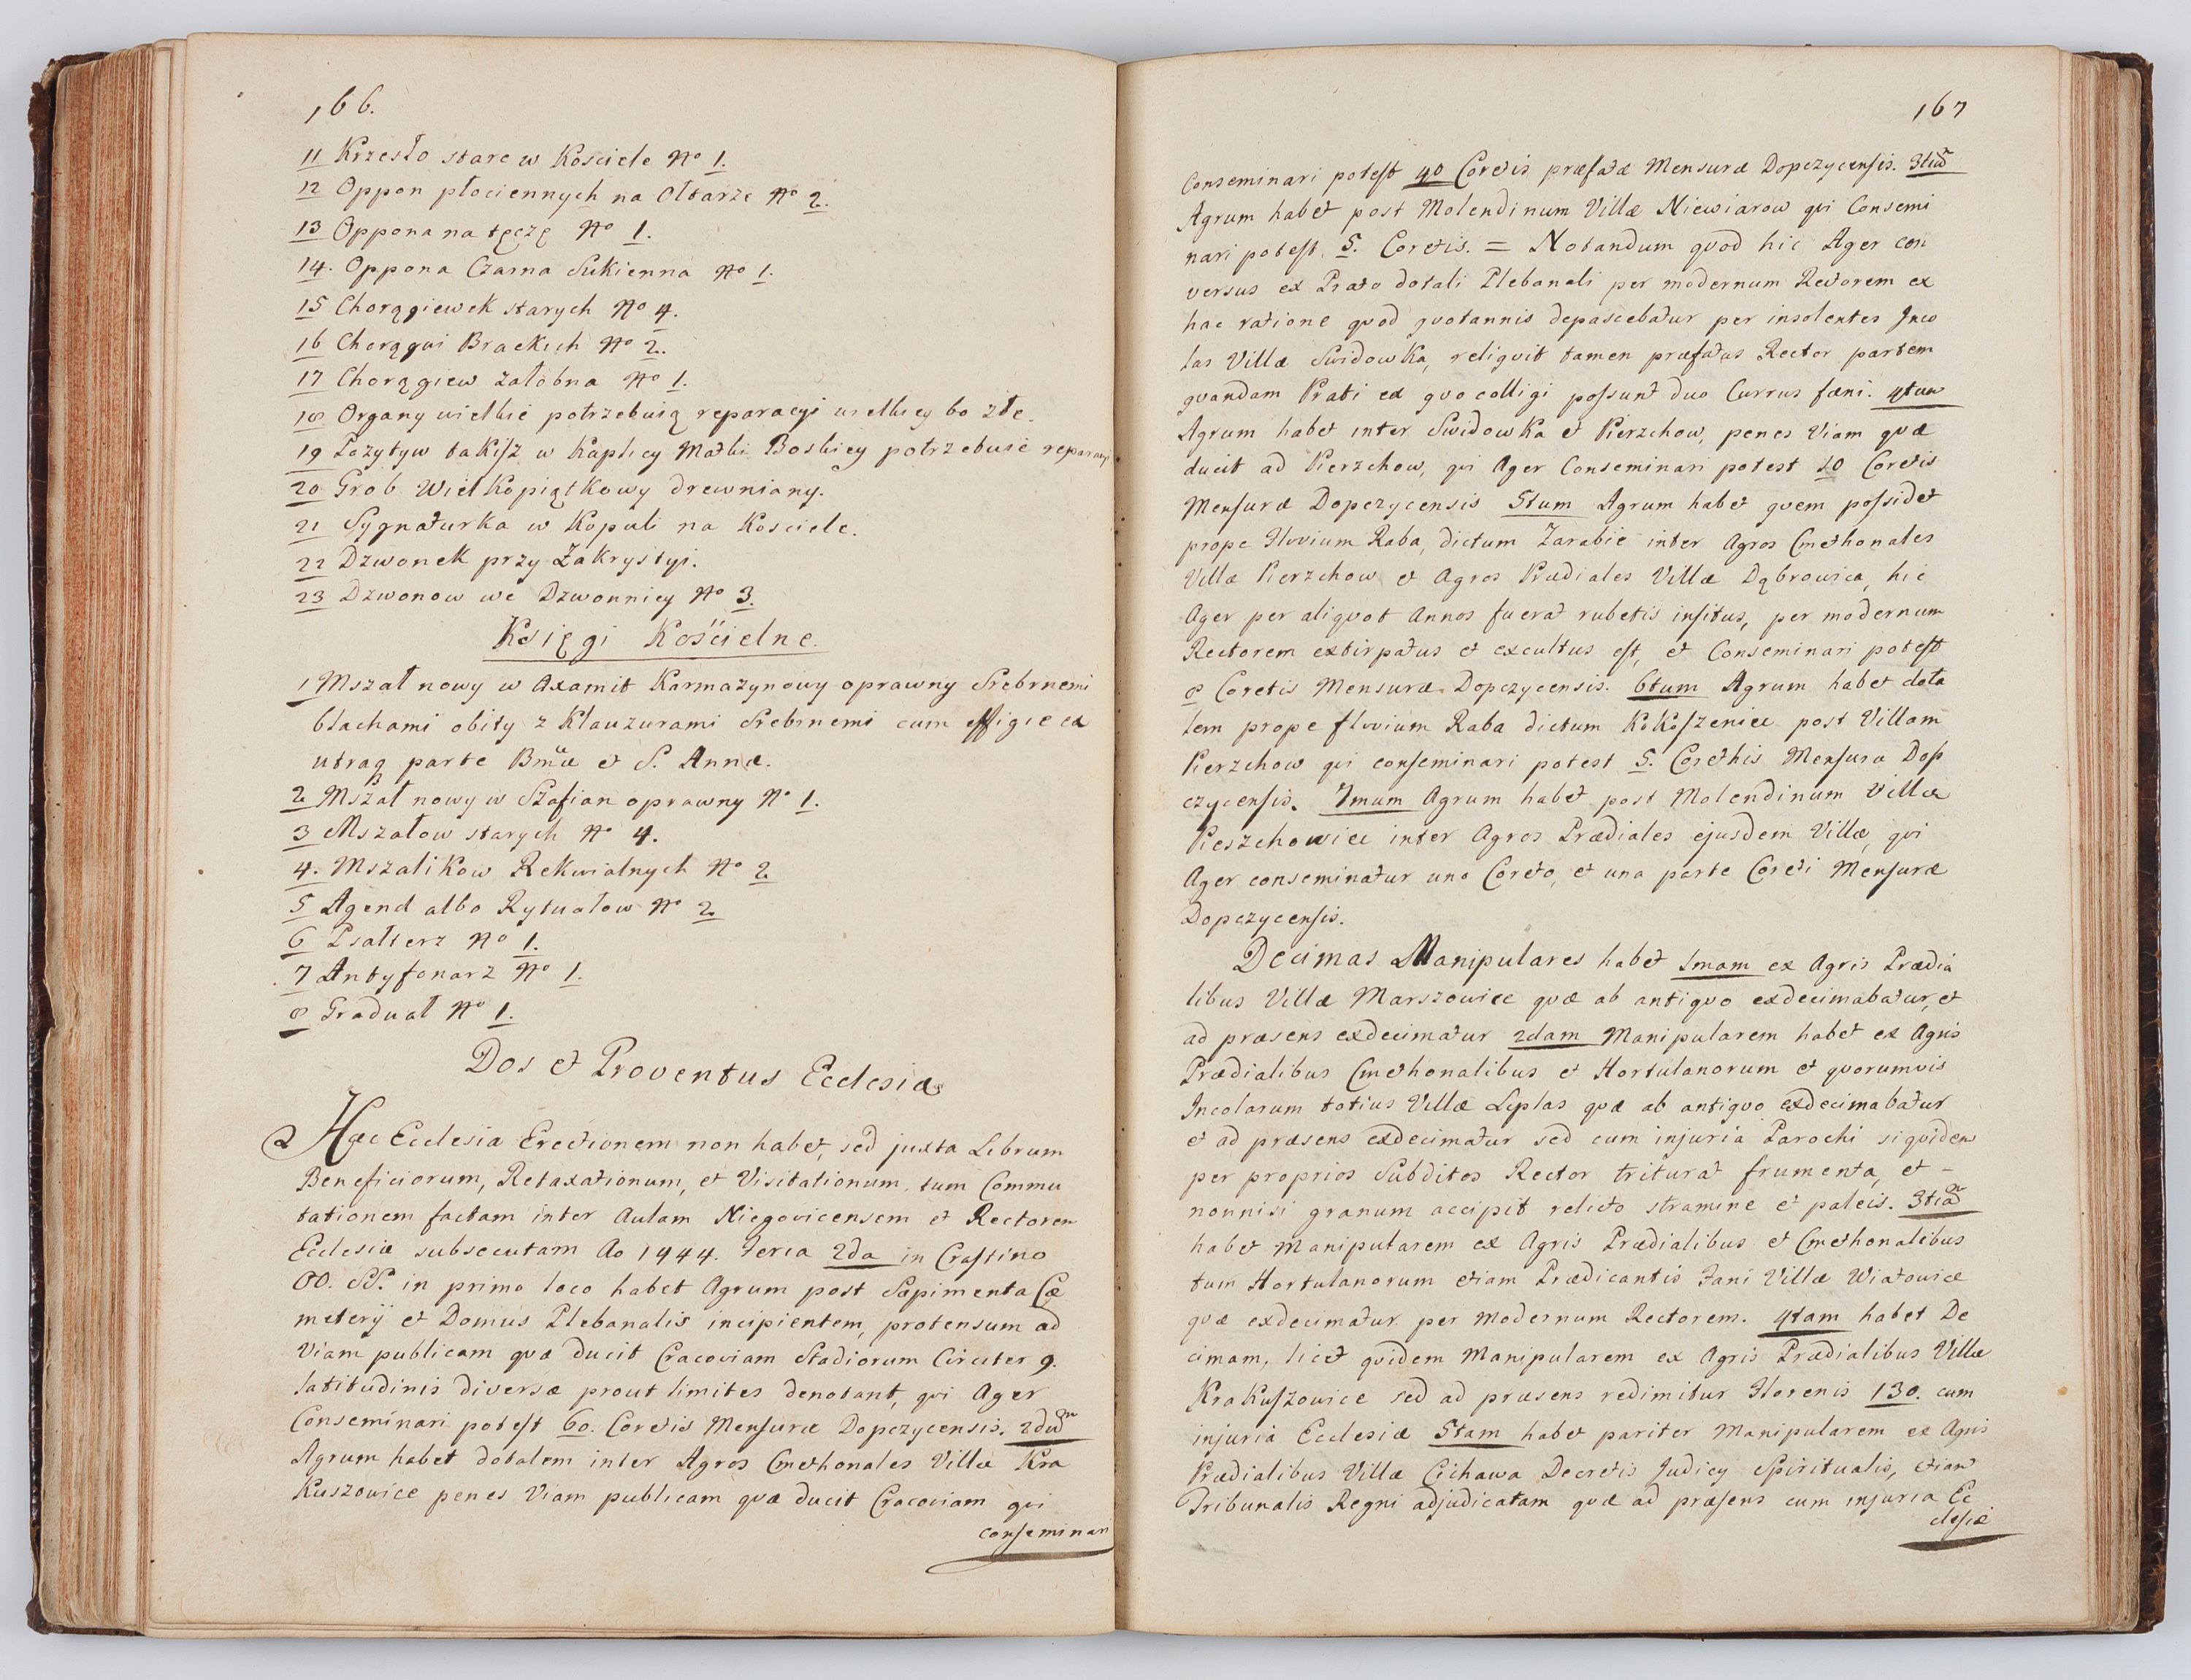 166.
11 Krzesło stare w Kosciele No 1.
12 Oppon płociennych na Ołtarze No 2.
13 Oppona na tęczę No 1.
14. Oppona Czarna Sukienna No 1.
15 Chorągiewek starych No 4.
16 Chorągwi Brackich No 2.
17 Chorągiew załobna No 1.
18 Organy wielkie potrzebuią reparacyi wielkiey bo złe.
19 Pozytyw takisz w Kaplicy Matki Boskiey potrzebuie reparacyi
20 Grob Wielkopiątkowy drewniany.
21 Sygnaturka w Kopuli na Kosciele.
22 Dzwonek przy Zakrystyi.
23 Dzwonow we Dzwonnicy No 3.
Księgi Kościelne.
1 Mszał nowy w Axamit Karmazynowy oprawny Srebrnemi
blachami obity z Klauzurami Srebrnemi cum effigie ex
utraq parte Bmæ et S. Annæ.
2 Mszał nowy w Szafian oprawny No 1.
3 Mszałow starych No 4.
4. Mszalikow Rekwialnych No 2
5 Agend albo Rytuałow No 2
6 Psałterz No 1.
7 Antyfonarz No 1.
8 Graduał No 1.
Dos et Proventus Ecclesiæ
Hæc Ecclesia Erectionem non habet, sed juxta Librum
Beneficiorum, Retaxationum, et Visitationum, tum Commu
tationem factam inter Aulam Niegovicensem et Rectorem
Ecclesiæ subsecutam Ao 1444. Feria 2da in Crastino
OO. SS. in primo loco habet Agrum post Sæpimenta Cæ
meterij et Domus Plebanalis incipientem, protensum ad
Viam publicam quæ ducit Cracoviam Stadiorum Circiter 9.
latitudinis diversæ prout limites denotant, qui Ager
Conseminari potest 60. Coretis Mensuræ Dopczycensis. 2dum
Agrum habet dotalem inter Agros Cmethonales Villæ Kra
Kuszowice penes Viam publicam quæ ducit Cracoviam qui
conseminari
167
Conseminari potest 40 Coretis præfatæ Mensuræ Dopczycensis. 3tium
Agrum habet post Molendinum Villæ Niewiarow qui Consemi
nari potest. 5. Coretis. = Notandum quod hic Ager con
versus ex Prato dotali Plebanali per modernum Rectorem ex
hac ratione quod quotannis depascebatur per insolentes Inco
las Villæ Swidowka, reliquit tamen præfatus Rector partem
quandam Prati ex quo colligi possunt duo Currus fæni. 4tum
Agrum habet inter Swidowka et Pierzchow, penes Viam quæ
ducit ad Pierzchow, qui Ager Conseminari potest 10 Coretis
Mensuræ Dopczycensis 5tum Agrum habet quem possidet
prope Fluvium Raba, dictum Zarabie inter Agros Cmethonales
Villæ Pierzchow et Agros Prædiales Villæ Dąbrowica, hic
Ager per aliquot Annos fuerat rubetis insitus, per modernum
Rectorem extirpatus et excultus est, et Conseminari potest
8 Coretis Mensuræ Dopczycensis. 6tum Agrum habet dota
lem prope fluvium Raba dictum Kokoszenice post Villam
Pierzchow qui conseminari potest 5. Corethis Mensura Dop
czycensis. 7mum Agrum habet post Molendinum Villæ
Pieszchowice inter Agros Prædiales ejusdem Villæ, qui
Ager conseminatur uno Coreto, et una parte Coreti Mensuræ
Dopczycensis.
Decimas Manipulares habet 1mam ex Agris Prædia
libus Villæ Marszowice quæ ab antiquo exdecimabatur, et
ad præsens exdecimatur 2dam Manipularem habet ex Agris
Prædialibus Cmethonalibus et Hortulanorum et quorumvis
Incolarum totius Villæ Liplas quæ ab antiquo exdecimabatur
et ad præsens exdecimatur sed cum injuria Parochi siquidem
per proprios Subditos Rector triturat frumenta, et -
nonnisi granum accipit relicto stramine et paleis. 3tiam
habet Manipularem ex Agris Prædialibus et Cmethonalibus
tum Hortulanorum etiam Prædicantis Fani Villæ Wiatowice
quæ exdecimatur per modernum Rectorem. 4tam habet De
cimam, licet quidem Manipularem ex Agris Prædialibus Villæ
Krakuszowice sed ad præsens redimitur Florenis 130. cum
injuria Ecclesiæ 5tam habet pariter Manipularem ex Agris
Prædialibus Villæ Cichawa Decretis Judicy Spiritualis, etiam
Tribunalis Regni adjudicatam quæ ad præsens cum injuria Ec
clesiæ